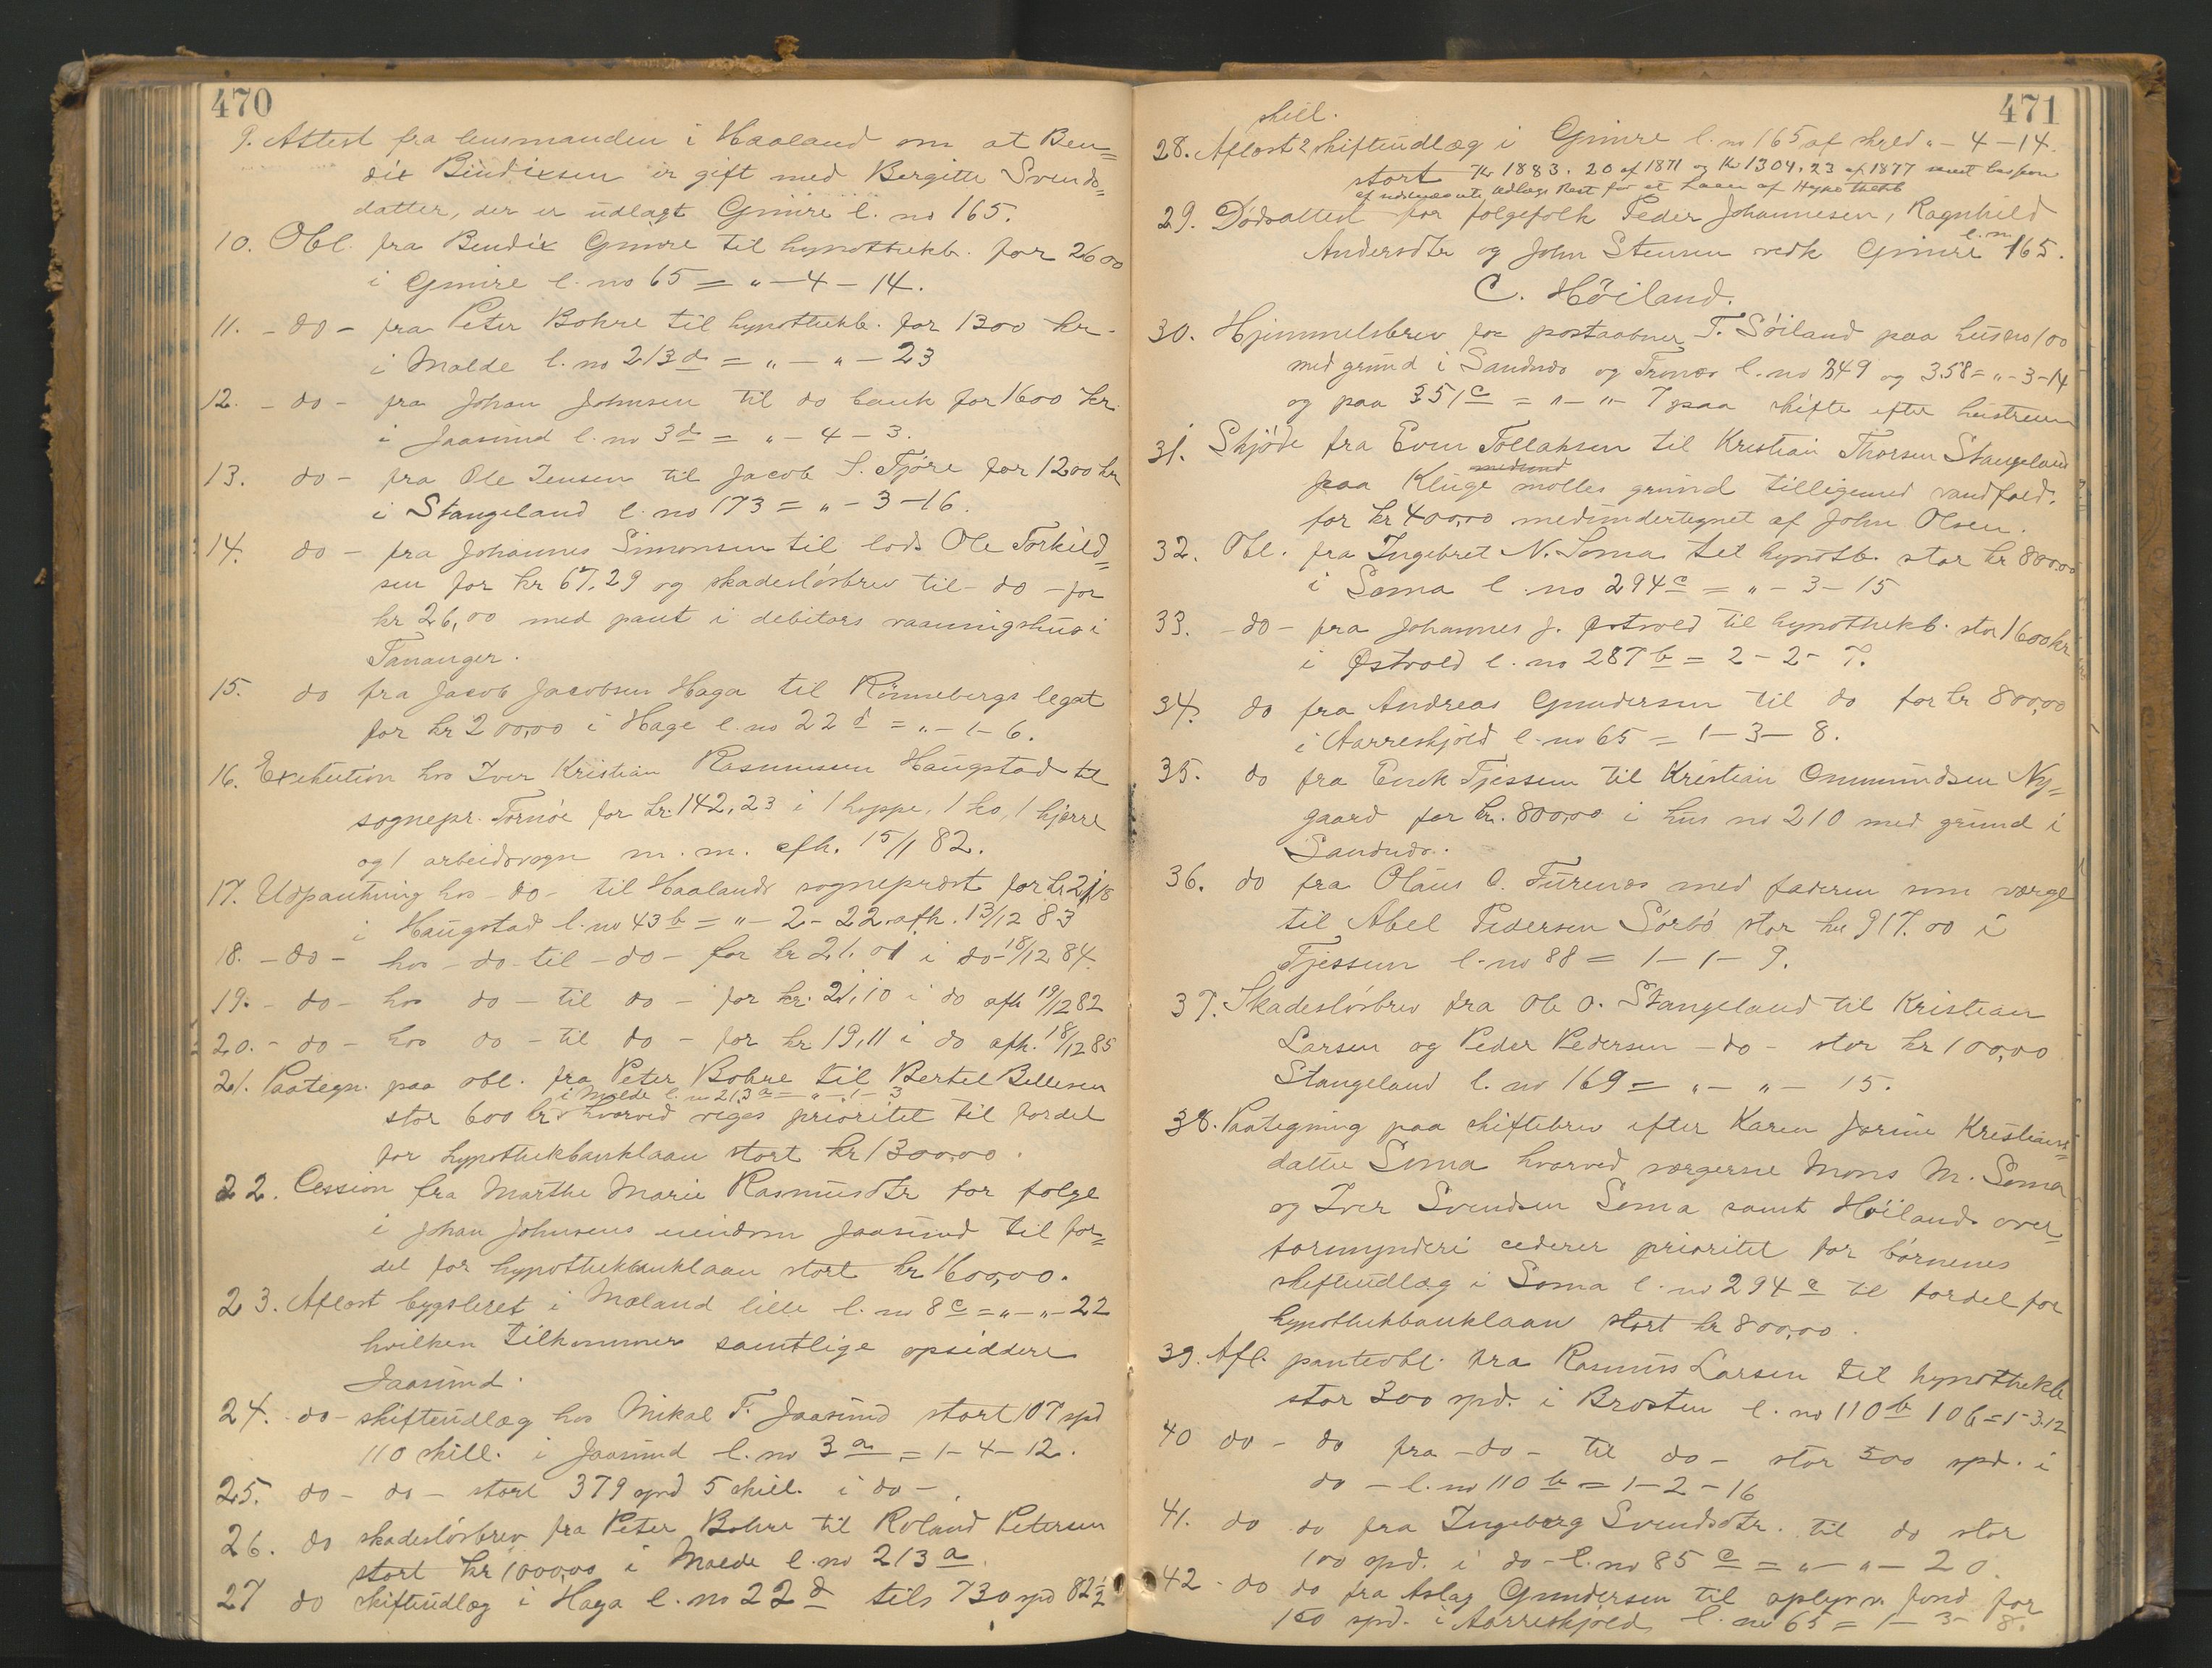 470
9. Attest fra lensmanden i Haaland om at Ben=
dix Bendixsen er gift med Bergitte Svends=
datter, der er udlagt Gimre l. no 165.
10. Obl. fra Bendix Gimre til hypothekb. for 2600
i Gimre l. no 65 = " - 4 - 14.
11. - do - fra Peter Bohre til hypothekb. for 1300 kr.
i Malde l. no 213d = " - " - 23
12. - do - fra Johan Johnsen til do bank for 1600 kr.
i Jaasund l. no 3d = " - 4 - 3.
13. do - fra Ole Jensen til Jacob S. Tjöre for 1200 kr
i Stangeland l. no 173 = " - 3 - 16.
14. do - fra Johannes Simonsen til lods Ole Torkild=
sen for kr 67,29 og skadeslösbrev til - do - for
kr 26,00 med pant i debitors vaaningshus i
Tananger.
15. do fra Jacob Jacobsen Haga til Rönnebergs legat
for kr 200,00 i Hage l. no 22d = " - 1 - 6.
16. Exekution hos Iver Kristian Rasmussen Haugstad til
sognepr. Tornöe for kr. 142,23 i 1 hoppe, 1 ko, 1 kjerre
og 1 arbeidsvogn m. m. afh. 15/1 82.
17. Udpantning hos - do - til Haalands sogneprest for kr 21,18
i Haugstad l. no 43b = " - 2 - 22 afh. 13/12 83
18. - do - hos - do - til - do - for kr 21.01 i do - 18/12 84.
19. - do - hos do - til do - for kr. 21,10 i do afh 19/12 82
20. - do - hos do - til do - for kr 19,11 i do afh. 18/12 85
21. Paategn. paa obl. fra Peter Bohre til Bertel Bellesen
i Malde l. no 213a = " - 1 - 3
stor 600 kr hvorved viges prioritet til fordel
for hypothekbanklaan stort kr 1300,00.
22. Cession fra Marthe Marie Rasmusdtr for folge
i Johan Johnsens eiendom Jaasund til for=
del for hypothekbanklaan stort kr 1600,00.
23. Aflöst bygsleret i Mæland lille l. no 8c = " - " - 22
hvilken tilkommer samtlige opsiddere
Jaasund.
24. - do - skifteudlæg hos Mikal T. Jaasund stort 107 spd
110 skill. i Jaasund l. no 3a = 1 - 4 - 12.
25. do - do - stort 379 spd 5 skill. i do -
26. do skadeslösbrev fra Peter Bohre til Roland Petersen
stort kr 1000,00 i Malde l. no 213a.
27 do skifteudlæg i Haga l. no 22d tils 730 spd 82½
471
skill.
28. Aflöst 2 skifteudlæg i Gimre l. no 165 af skyld " - 4 - 14.
stort Kr 1883.20 af 1871 og Kr 1304.23 af 1877 samt
af Udlægs Rest for et Laan af Hypothekb
29. Dödsattest for folgefolk Peder Johannesen, Ragnhild
Andersdtr og John Stensen vedk Gimre l. n. 165.
C. Höiland.
30. Hjemmelsbrev for postaabner T. Söiland paa hus no 100
med grund i Sandnæs og Tronæs l. no 349 og 358 = " - 3 - 14
og paa 351c = " - " - 7 paa skifte efter hustruen
31. Skjöde fra Even Tollaksen til Kristian Thorsen Stangeland
paa Kluge mölles grund tilligemed vandfald.
for kr 400,00 medundertegnet af John Olsen.
32. Obl. fra Ingebret N. Soma til hypothb. stor kr 800,00
i Soma l. no 294c = " - 3 - 15
33. - do - fra Johannes J. Østvold til hypothekb. stor 1600 kr
i Østvold l. no 287b = 2 - 2 - 7.
34. do fra Andreas Gundersen til do for kr 800,00
i Aarreskjold l. no 65 = 1 - 3 - 8.
35. do fra Enok Tjessem til Kristian Ommundsen Ny=
gaard for kr. 800,00 i hus no 210 med grund i
Sandnæs.
36. do fra Olaus O. Furenæs med faderen som værge
til Abel Pedersen Sörbö stor kr 917.00 i
Tjessem l. no 88 = 1 - 1 - 9.
37. Skadeslösbrev fra Ole O. Stangeland til Kristian
Larsen og Peder Pedersen - do - stor kr 100,00
Stangeland l. no 169 = " - " - 15.
38. Paategning paa skiftebrev efter Karen Jorine Kristians=
datter Soma hvorved værgerne Mons M. Soma
og Iver Svendsen Soma samt Höilands over=
formynderi cederer prioritet for börnenes
skifteudlæg i Soma l. no 294c til fordel for
hypothekbanklaan stort kr 800,00.
39. Afl. panteobl. fra Rasmus Larsen til hypothekb
stor 300 spd. i Brosten l. no 110b 106 = 1 - 3 - 12
40 do - do fra - do - til do - stor 500 spd. i
do - l. no 110b = 1 - 2 - 16
41. do do fra Ingeborg Svendsdtr. til do stor
100 spd. i do - l. no 85c = " - " - 20.
42 - do do fra Aslag Gundersen til oplysn. fond for
150 spd. i Aarreskjold l. no 65 = 1 - 3 - 8.